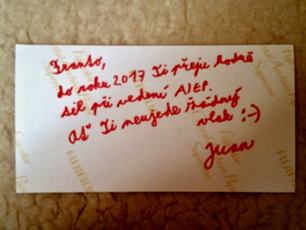 Franto,
do roku 2017 Ti přeju hodně
sil při vedení AIEP.
Ať Ti neujede žádný
vlak :-)
Juan